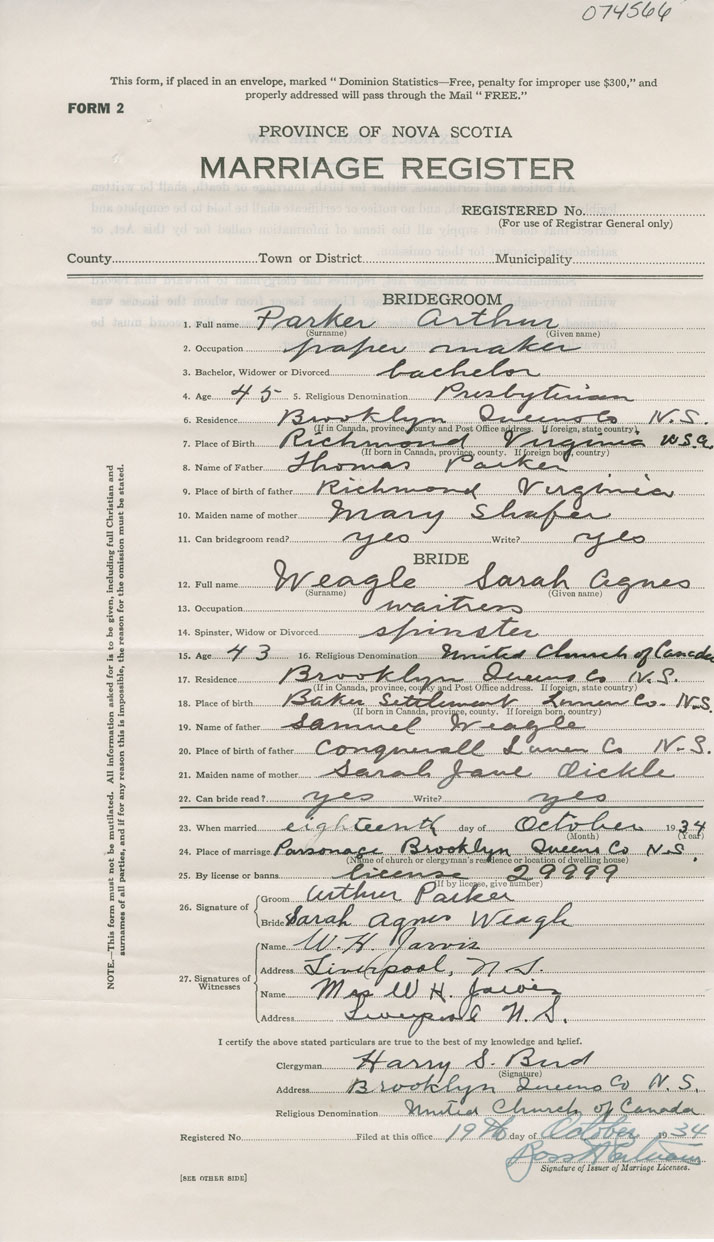 074566
This form, if placed in an envelope, marked " Dominion Statistics—Free, penalty for improper use $300," and
properly addressed will pass through the Mail " FREE."
FORM 2
PROVINCE OF NOVA SCOTIA
MARRIAGE REGISTER
REGISTERED No.
(For use of Registrar General only)
County Town or District Municipality
BRIDEGROOM
1. Full name Parker Arthur
(Surname) (Given name)
2. Occupation paper maker
3. Bachelor, Widower or Divorced bachelor
4. Age 45 5. Religious Denomination Presbyterian
6. Residence Brooklyn Queens Co N.S.
(If in Canada, province, county and Post Office address. If foreign, state country)
7. Place of Birth Richmond Virginia U.S.A.
(If born in Canada, province, county. If foreign born, country)
8. Name of Father Thomas Parker
9. Place of birth of father Richmond Virginia
10. Maiden name of mother Mary Shafer
11. Can bridegroom read? yes Write? yes
BRIDE
12. Full name Weagle Sarah Agnes
(Surname) (Given name)
13. Occupation waitress
14. Spinster, Widow or Divorced spinster
15. Age 43 16. Religious Denomination United Church of Canada
17. Residence Brooklyn Queens Co N.S.
(If in Canada, province, county and Post Office address. If foreign, state country)
18. Place of birth Baker Settlement Lunen Co. N.S.
(If born in Canada, province, county. If foreign born, country)
19. Name of father Samuel Weagle
20. Place of birth of father Conquerall Lunen Co N.S.
21. Maiden name of mother Sarah Jane Oickle
22. Can bride read? yes Write? yes
23. When married eighteenth day of October 1934
(Month) (Year)
24. Place of marriage Parsonage Brooklyn Queens Co N.S.
(Name of church or clergyman's residence or location of dwelling house)
25. By license or banns license 29999
(If by license, give number)
26. Signature of Groom Arthur Parker
Bride Sarah Agnes Weagle
27. Signatures of Witnesses
Name W. H. Jarvis
Address Liverpool, N.S.
Name Mrs W H. Jarvis
Address Liverpool N.S.
I certify the above stated particulars are true to the best of my knowledge and belief.
Clergyman Harry S. Bird
(Signature)
Address Brooklyn Queens Co N.S.
Religious Denomination United Church of Canada
Registered No. Filed at this office 19th day of October 1934
Signature of Issuer of Marriage Licenses.
[SEE OTHER SIDE]
NOTE.—This form must not be mutilated. All information asked for is to be given, including full Christian and
surnames of all parties, and if for any reason this is impossible, the reason for the omission must be stated.